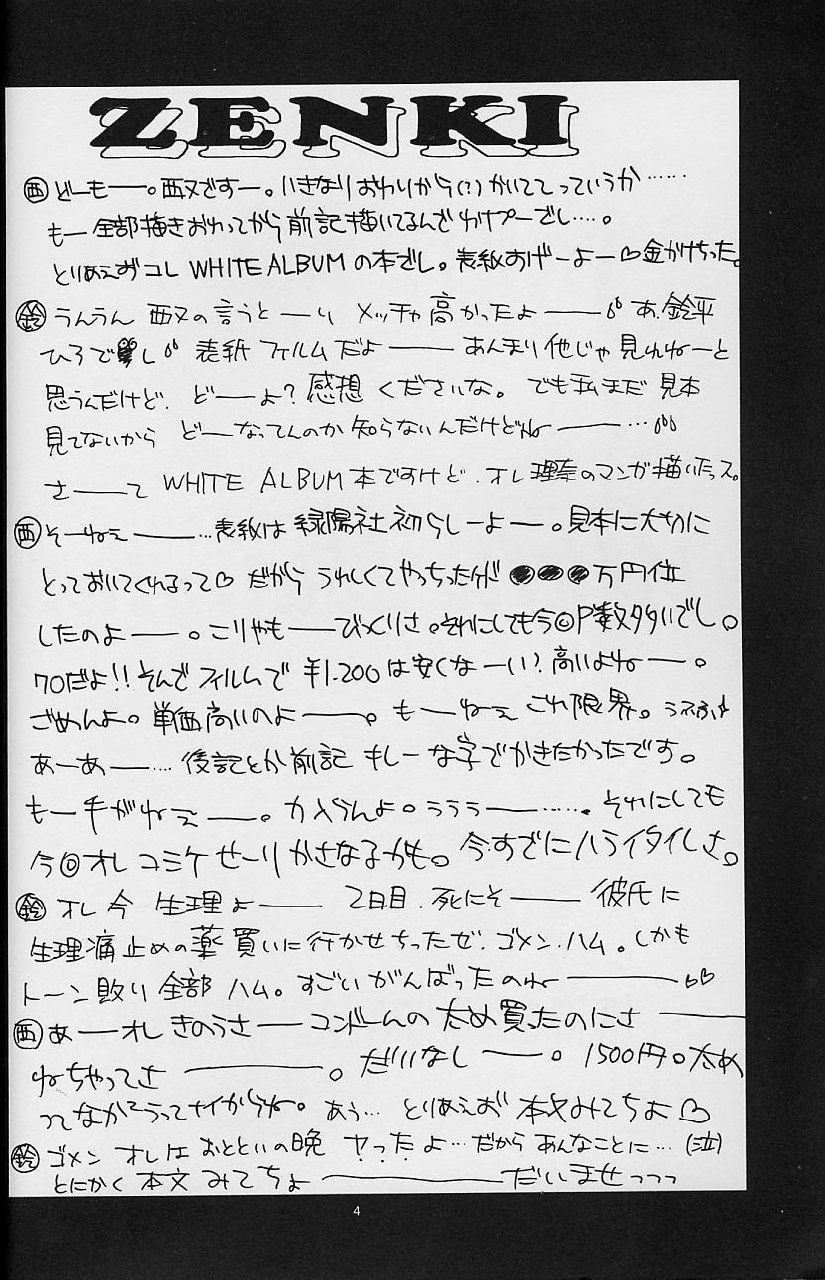 ZENKI
西 どーもー。西又ですー。いきなりおわりから(?)かいててっていうか……
もー全部描きおわってから前記描いてるんでわけプーでし…。
とりあえずコレ WHITE ALBUM の本でし。表紙すげーよー♡金かけちった。
鈴 うんうん 西又の言うとーり メッチャ高かったよー あ、鈴平
ひろでし 表紙フィルムだよー あんまり他じゃ見れねーと
思うんだけど、どーよ?感想くださいな。でも私まだ見本
見てないから どーなってんのか知らないんだけどねー…
さーて WHITE ALBUM本ですけど、オレ理奈のマンガ描いたっス。
西 そーねぇー…表紙は緑陽社初らしーよー。見本に大切に
とっておいてくれるって♡ だからうれしくてやっちったけど ●●●万円位
したのよー。こりゃもーびっくりさ。それにしても今回P数多いでし。
70だよ!!そんでフィルムで ¥1.200は安くなーい?高いよねー。
ごめんよ。単価高いのよー。もーねぇ これ限界。うえふぃ
あーあー…後記とか前記 もしーな字でかきたかったです。
もー手がねぇー。力入らんよ。ううう―……それにしても
今回オレコミケせーりかさなるかも。今すでにハライタイしさ。
鈴 オレ今 生理よー 2日目、死にそー 彼氏に
生理痛止めの薬買いに行かせちったぜ、ゴメン、ハム。しかも
トーン貼り全部ハム。すごいがんばったのねー♡♡
西 あーオレきのうさーコンドームの太め買ったのにさー
ねちゃってさー。だいなしー。1500円。太め
ってなかなかうってナイからね。あぅ…とりあえず本文みてちょ♡
鈴 ゴメン オレはおとといの晩 ヤったよ…だからあんなことに…(泣)
とにかく本文みてちょーだいませっっっ
4